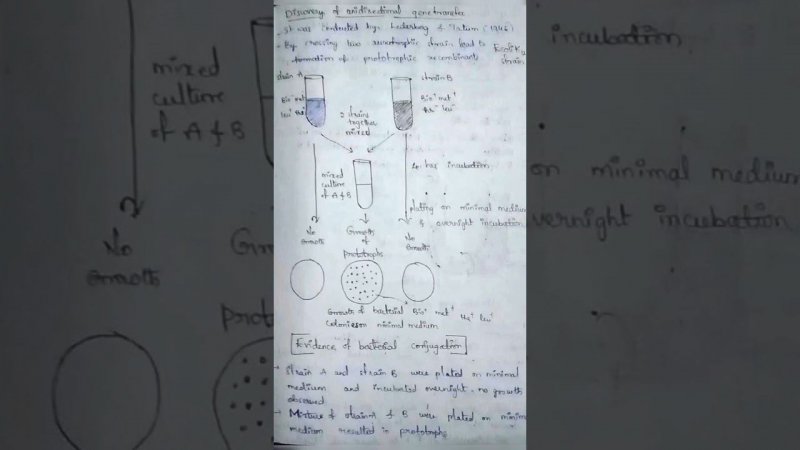 Discovery of unidirectional gene transfer
- It was conducted by: Lederberg & Tatum (1946)
- By crossing two auxotrophic strain lead to
formation of prototrophic recombinant
Ecoli K12
strain
strain A
strain B
Bio⁻ met⁻
leu⁺ thi⁺
Bio⁺ met⁺
leu⁻
2 strains
together
mixed
mixed
culture
of A & B
hrs incubation
plating on minimal medium
& overnight incubation
No
Growth
Growth
of
prototrophs
No
Growth
Growth of bacterial
Bio⁺ met⁺ leu⁺
Colonies on minimal medium
Evidence of bacterial conjugation
- Strain A and strain B were plated on minimal
medium and incubated overnight - no growth
observed
- Mixture of strain A & B were plated on minimal
medium resulted in prototrophs